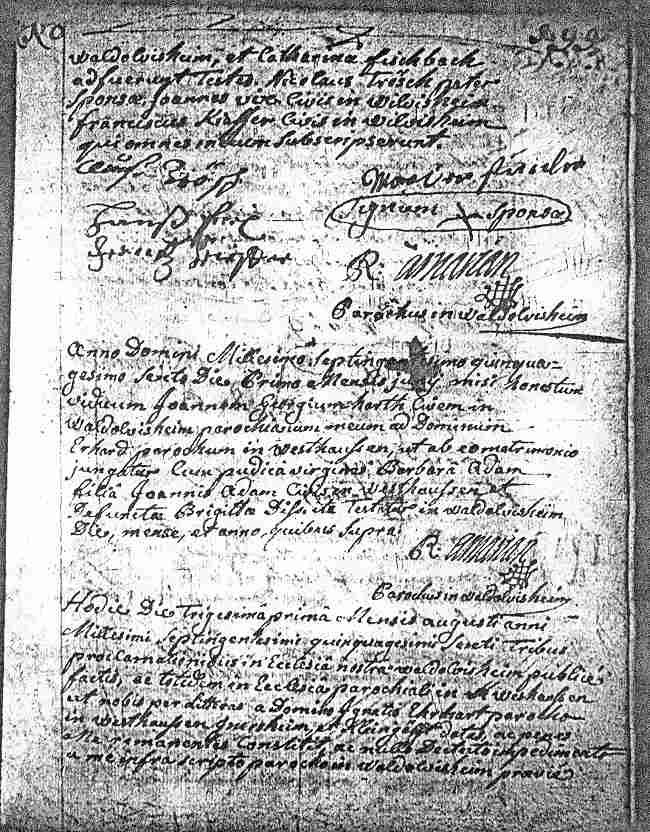 waldolvisheim, et Catharina fischbach
adfuerunt testes. Nicolaus Trösch pater
Sponsae, Joannes vix Civis in Wilvisheim
franciscus Kieffer Civis in Wilvisheim
qui omnes mecum Subscripserunt.
Signum Sponsae
R. amaran
Parochus in waldolvisheim
Anno Domini Millesimo Septingentesimo quinqua=
gesimo Sexto Die Primo Mensis juny misi honestum
viduum Joannem Georgium harth Civem in
waldolvisheim parochianum meum ad Dominum
Erhard parochum in westhaussen, ut ab eo matrimonio
jungatur Cum pudica virgine Barbarâ Adam
filiâ Joannis Adam Civis in westhaussen et
defunctae Brigittae in waldolvisheim
Die, mense, et anno, quibus Supra.
R. amaran
Parochus in waldolvisheim
Hodie Die Trigesimâ primâ Mensis augusti anni
Millesimi Septingentesimi quinquagesimi Sexti Tribus
proclamationibus in Ecclesiâ nostrâ waldolvisheim publice
factis, ac totidem in Ecclesiâ parochiali in westhaussen
ut nobis per litteras a Domino Ignatio Ehrhart parocho
in westhaussen
ac nullo Detecto impedimento
a me infra Scripto parocho in waldolvisheim praeviè